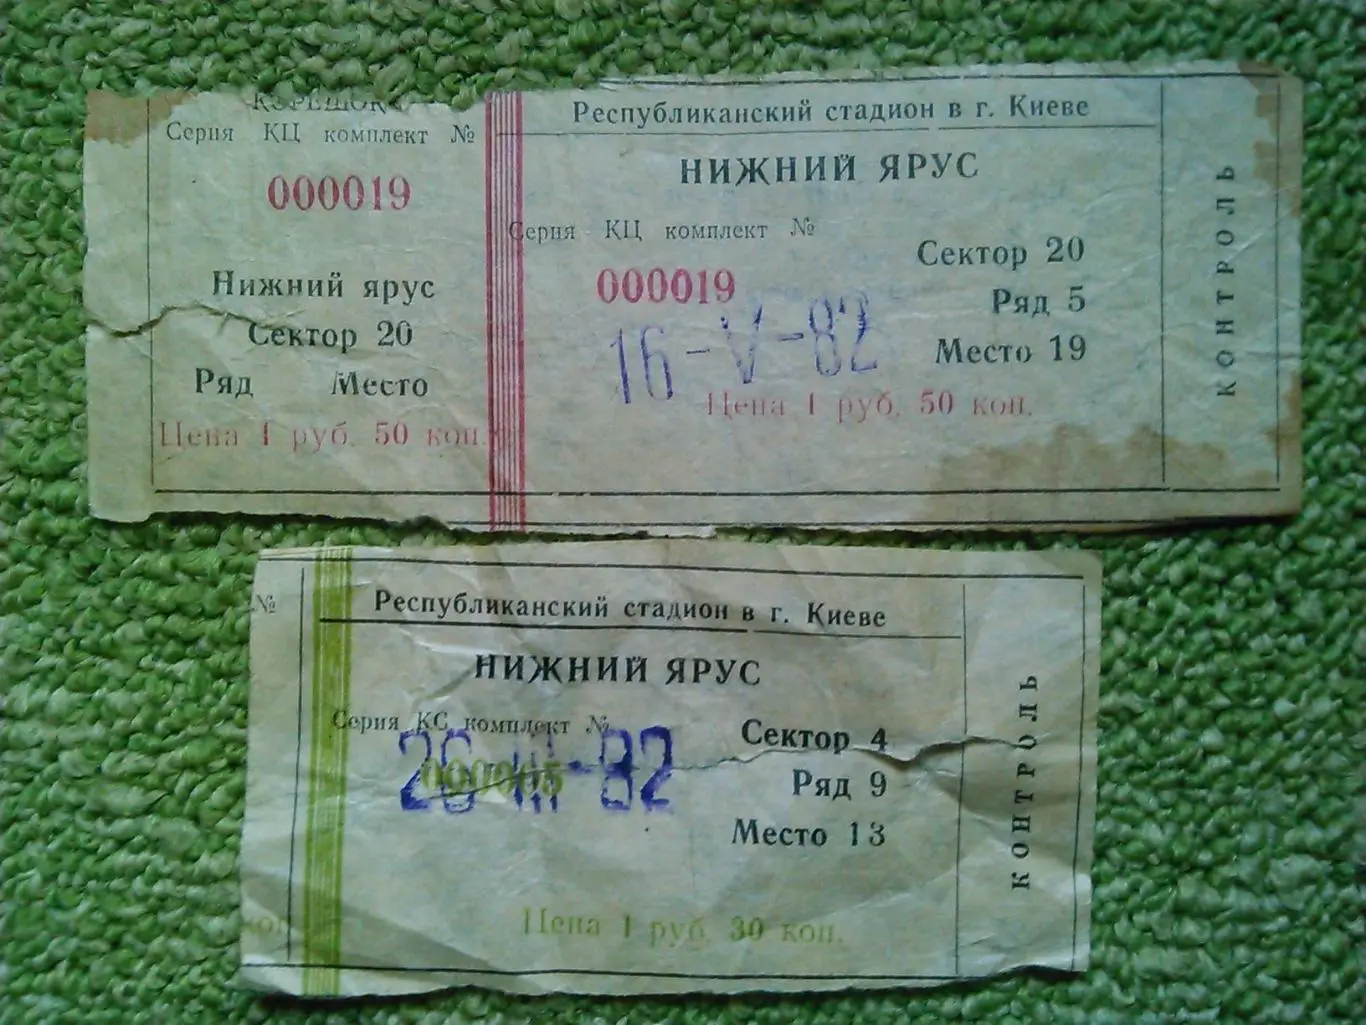 КОРЕШОК
Серия КЦ комплект №
000019
Нижний ярус
Сектор 20
Ряд Место
Цена 1 руб. 50 коп.
Республиканский стадион в г. Киеве
НИЖНИЙ ЯРУС
Серия КЦ комплект №
000019
16-V-82
Сектор 20
Ряд 5
Место 19
Цена 1 руб. 50 коп.
КОНТРОЛЬ
№
коп.
Республиканский стадион в г. Киеве
НИЖНИЙ ЯРУС
Серия КС комплект №
000005
26-III-82
Сектор 4
Ряд 9
Место 13
Цена 1 руб. 30 коп.
КОНТРОЛЬ